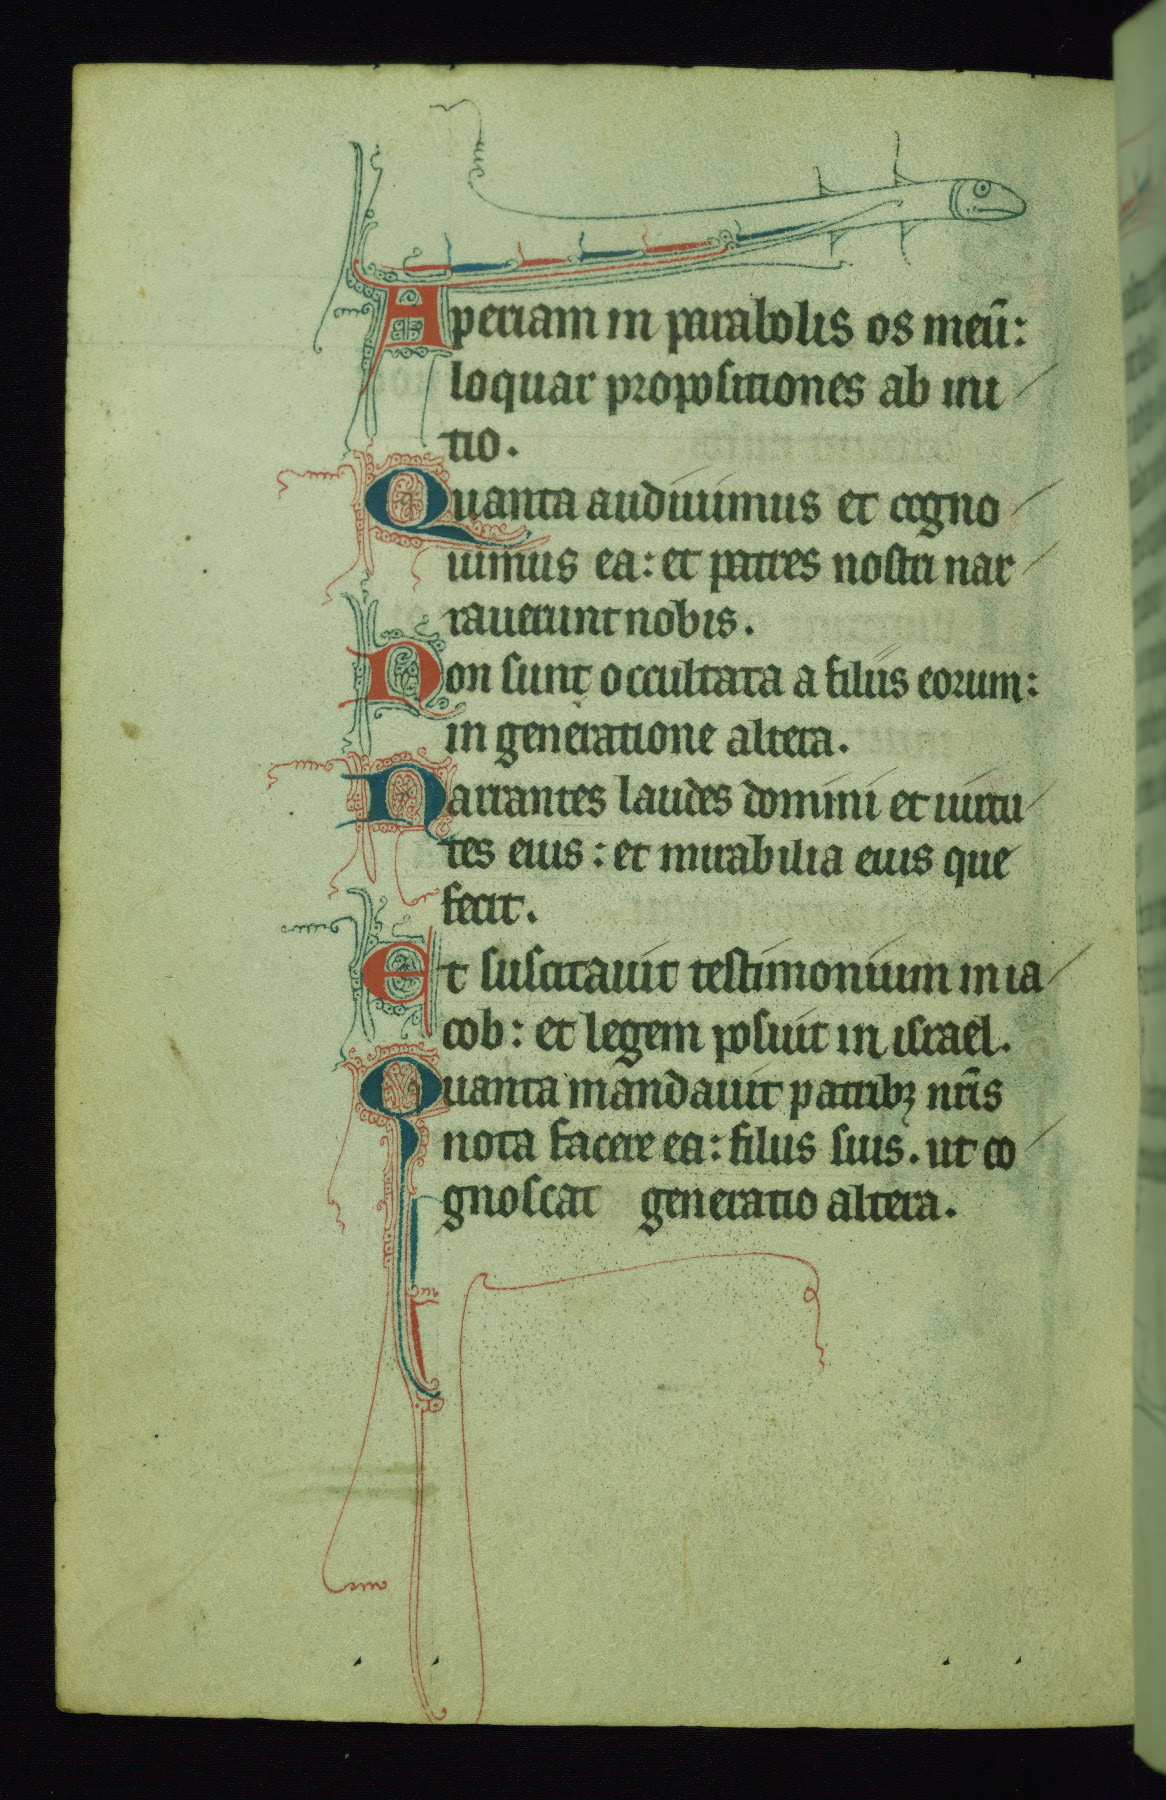 Aperiam in parabolis os meū:
loquar propositiones ab ini
tio.
Quanta audiuimus et cogno
uimus ea: et patres nostri nar
rauerunt nobis.
Non sunt occultata a filiis eorum:
in generatione altera.
Narrantes laudes domini et uirtu
tes eius: et mirabilia eius que
fecit.
Et suscitauit testimonium in ia
cob: et legem posuit in israel.
Quanta mandauit patribꝫ nr̄is
nota facere ea: filiis suis. ut co
gnoscat generatio altera.